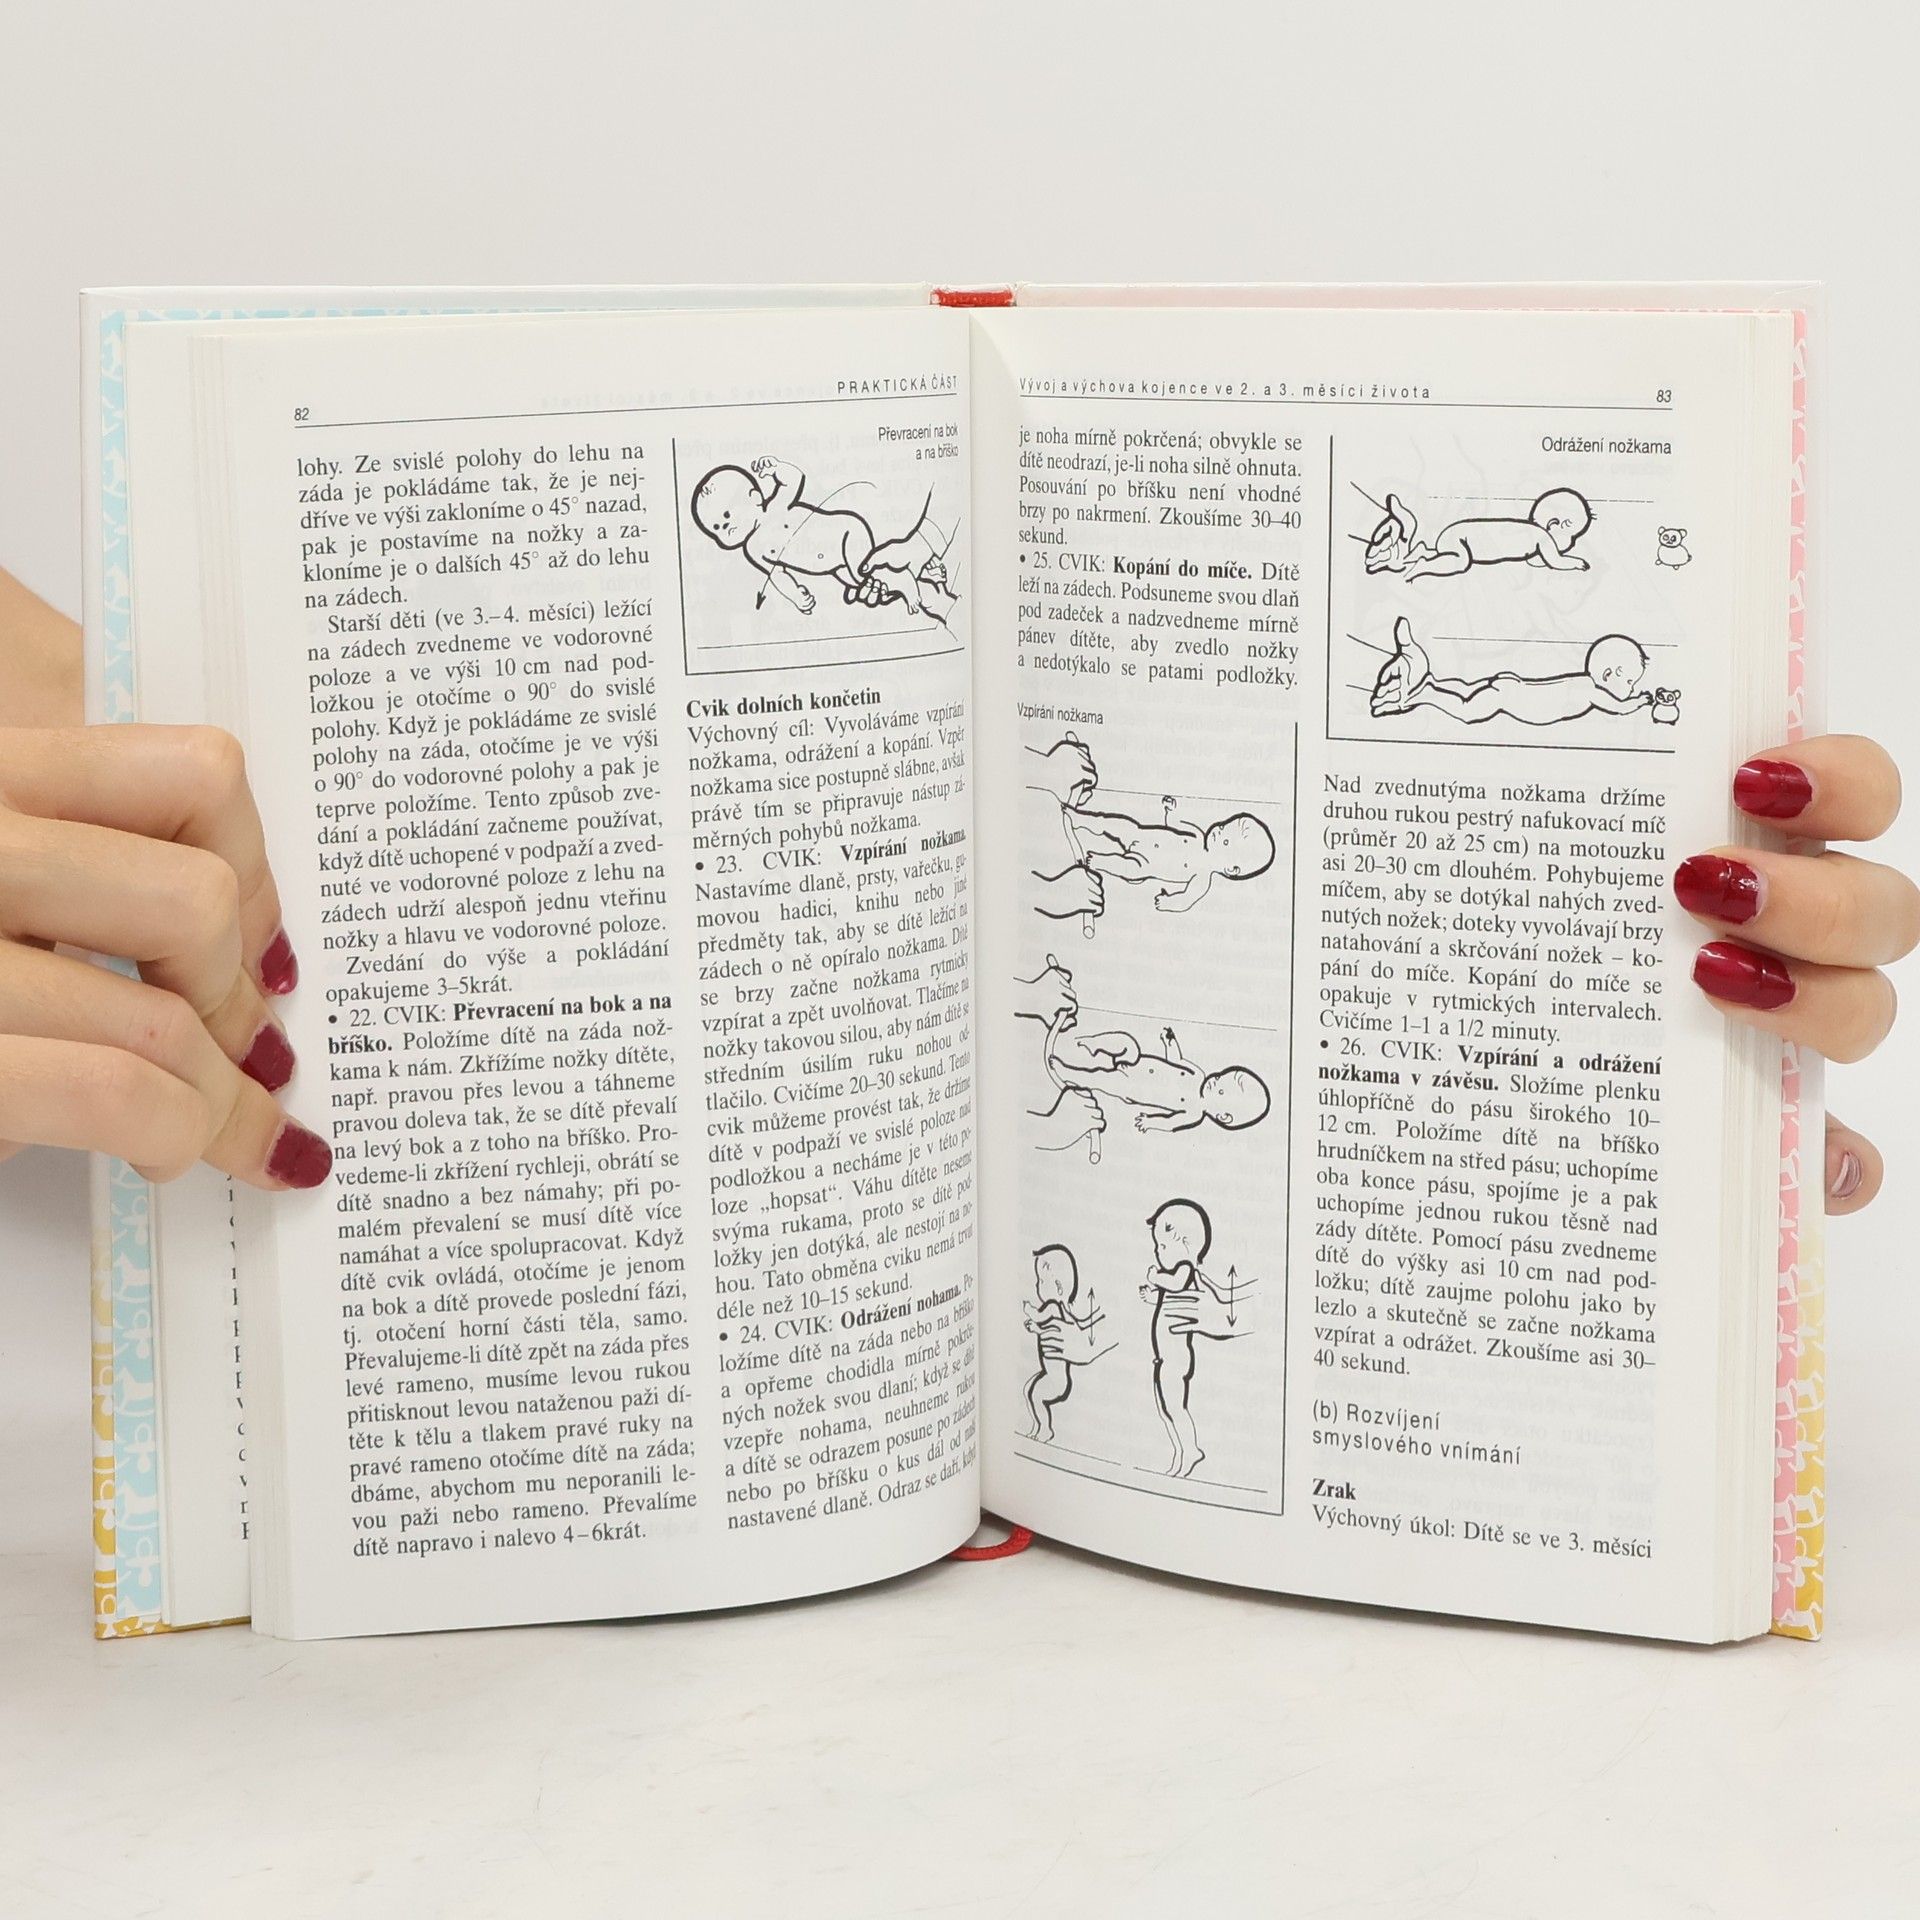 82
PRAKTICKÁ ČÁST
lohy. Ze svislé polohy do lehu na
záda je pokládáme tak, že je nej-
dříve ve výši zakloníme o 45° nazad,
pak je postavíme na nožky a za-
kloníme je o dalších 45° až do lehu
na zádech.
Starší děti (ve 3.–4. měsíci) ležící
na zádech zvedneme ve vodorovné
poloze a ve výši 10 cm nad pod-
ložkou je otočíme o 90° do svislé
polohy. Když je pokládáme ze svislé
polohy na záda, otočíme je ve výši
o 90° do vodorovné polohy a pak je
teprve položíme. Tento způsob zve-
dání a pokládání začneme používat,
když dítě uchopené v podpaží a zved-
nuté ve vodorovné poloze z lehu na
zádech udrží alespoň jednu vteřinu
nožky a hlavu ve vodorovné poloze.
Zvedání do výše a pokládání
opakujeme 3–5krát.
• 22. CVIK: Převracení na bok a na
bříško. Položíme dítě na záda nož-
kama k nám. Zkřížíme nožky dítěte,
např. pravou přes levou a táhneme
pravou doleva tak, že se dítě převalí
na levý bok a z toho na bříško. Pro-
vedeme-li zkřížení rychleji, obrátí se
dítě snadno a bez námahy; při po-
malém převalení se musí dítě více
namáhat a více spolupracovat. Když
dítě cvik ovládá, otočíme je jenom
na bok a dítě provede poslední fázi,
tj. otočení horní části těla, samo.
Převalujeme-li dítě zpět na záda přes
levé rameno, musíme levou rukou
přitisknout levou nataženou paži dí-
těte k tělu a tlakem pravé ruky na
pravé rameno otočíme dítě na záda;
dbáme, abychom mu neporanili le-
vou paži nebo rameno. Převalíme
dítě napravo i nalevo 4–6krát.
Převracení na bok
a na bříško
Cvik dolních končetin
Výchovný cíl: Vyvoláváme vzpírání
nožkama, odrážení a kopání. Vzpěr
nožkama sice postupně slábne, avšak
právě tím se připravuje nástup zá-
měrných pohybů nožkama.
• 23. CVIK: Vzpírání nožkama.
Nastavíme dlaně, prsty, vařečku, gu-
movou hadici, knihu nebo jiné
předměty tak, aby se dítě ležící na
zádech o ně opíralo nožkama. Dítě
se brzy začne nožkama rytmicky
vzpírat a zpět uvolňovat. Tlačíme na
nožky takovou silou, aby nám dítě se
středním úsilím ruku nohou od-
tlačilo. Cvičíme 20–30 sekund. Tento
cvik můžeme provést tak, že držíme
dítě v podpaží ve svislé poloze nad
podložkou a necháme je v této po-
loze „hopsat“. Váhu dítěte neseme
svýma rukama, proto se dítě pod-
ložky jen dotýká, ale nestojí na no-
hou. Tato obměna cviku nemá trvat
déle než 10–15 sekund.
• 24. CVIK: Odrážení nohama. Po-
ložíme dítě na záda nebo na bříško
a opřeme chodidla mírně pokrče-
ných nožek svou dlaní; když se dítě
vzepře nohama, neuhneme rukou
a dítě se odrazem posune po zádech
nebo po bříšku o kus dál od naší
nastavené dlaně. Odraz se daří, když
Vývoj a výchova kojence ve 2. a 3. měsíci života
83
je noha mírně pokrčená; obvykle se
dítě neodrazí, je-li noha silně ohnuta.
Posouvání po bříšku není vhodné
brzy po nakrmení. Zkoušíme 30–40
sekund.
• 25. CVIK: Kopání do míče. Dítě
leží na zádech. Podsuneme svou dlaň
pod zadeček a nadzvedneme mírně
pánev dítěte, aby zvedlo nožky
a nedotýkalo se patami podložky.
Vzpírání nožkama
Odrážení nožkama
Nad zvednutýma nožkama držíme
druhou rukou pestrý nafukovací míč
(průměr 20 až 25 cm) na motouzku
asi 20–30 cm dlouhém. Pohybujeme
míčem, aby se dotýkal nahých zved-
nutých nožek; doteky vyvolávají brzy
natahování a skrčování nožek – ko-
pání do míče. Kopání do míče se
opakuje v rytmických intervalech.
Cvičíme 1–1 a 1/2 minuty.
• 26. CVIK: Vzpírání a odrážení
nožkama v závěsu. Složíme plenku
úhlopříčně do pásu širokého 10–
12 cm. Položíme dítě na bříško
hrudníčkem na střed pásu; uchopíme
oba konce pásu, spojíme je a pak
uchopíme jednou rukou těsně nad
zády dítěte. Pomocí pásu zvedneme
dítě do výšky asi 10 cm nad pod-
ložku; dítě zaujme polohu jako by
lezlo a skutečně se začne nožkama
vzpírat a odrážet. Zkoušíme asi 30–
40 sekund.
(b) Rozvíjení
smyslového vnímání
Zrak
Výchovný úkol: Dítě se ve 3. měsíci